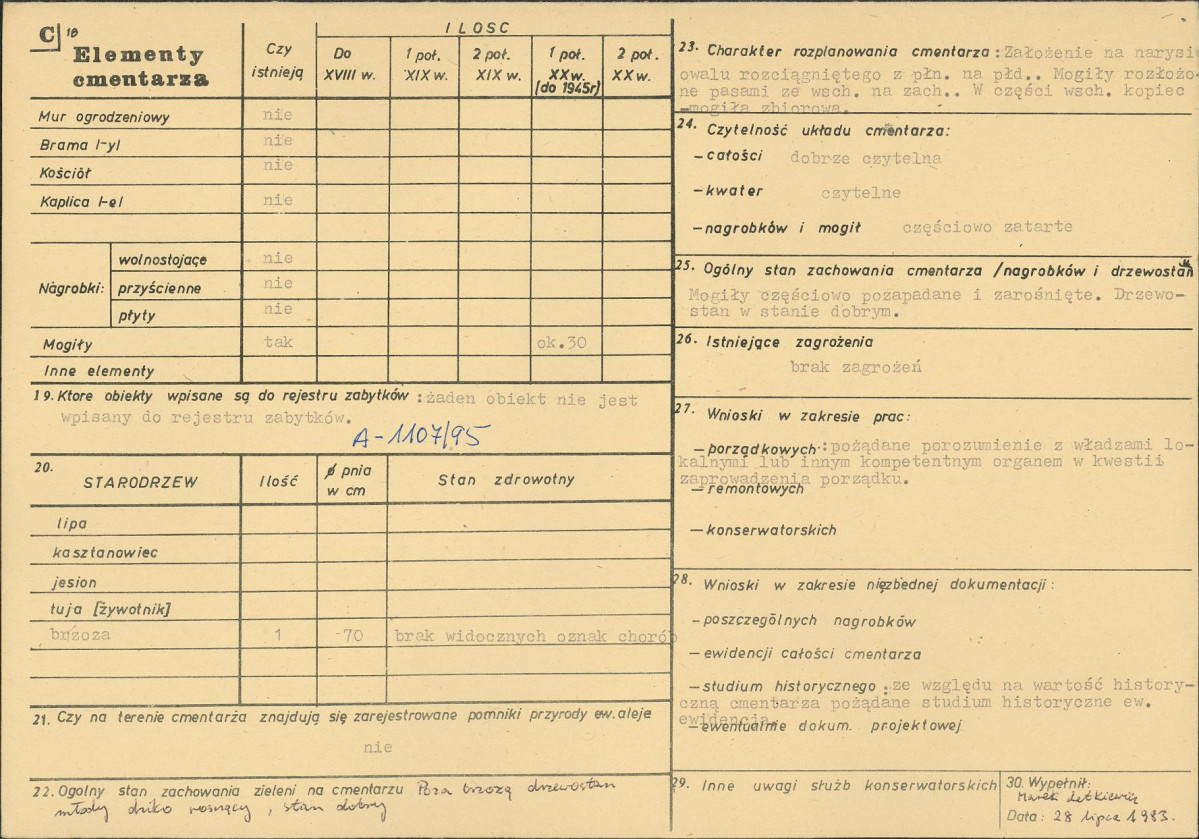 C 18
Elementy
cmentarza
Czy
istnieją
ILOSC
Do
XVIII w.
1 poł.
XIX w.
2 poł.
XIX w.
1 poł.
XX w.
(do 1945r)
2 poł.
XX w.
Mur ogrodzeniowy nie
Brama I-yl nie
Kościół nie
Kaplica I-el nie
Nagrobki:
wolnostojące nie
przyścienne nie
płyty nie
Mogiły tak ok.30
Inne elementy
19. Ktore obiekty wpisane są do rejestru zabytków : żaden obiekt nie jest
wpisany do rejestru zabytków.
A-1107/95
20.
STARODRZEW Ilość ø pnia
w cm Stan zdrowotny
lipa
kasztanowiec
jesion
tuja [żywotnik]
brzoza 1 70 brak widocznych oznak chorób
21. Czy na terenie cmentarza znajdują się zarejestrowane pomniki przyrody ew. aleje
nie
22. Ogolny stan zachowania zieleni na cmentarzu Poza brzozą drzewostan
młody dziko rosnący, stan dobry
23. Charakter rozplanowania cmentarza : Założenie na narysie
owalu rozciągniętego z płn. na płd.. Mogiły rozłożo-
ne pasami ze wsch. na zach.. W części wsch. kopiec
-mogiła zbiorowa.
24. Czytelność układu cmentarza:
- całości dobrze czytelna
- kwater czytelne
- nagrobków i mogił częściowo zatarte
25. Ogólny stan zachowania cmentarza /nagrobków i drzewostan
Mogiły częściowo pozapadane i zarośnięte. Drzewo-
stan w stanie dobrym.
26. Istniejące zagrożenia
brak zagrożeń
27. Wnioski w zakresie prac:
- porządkowych : pożądane porozumienie z władzami lo-
kalnymi lub innym kompetentnym organem w kwestii
zaprowadzenia porządku.
- remontowych
- konserwatorskich
28. Wnioski w zakresie niezbednej dokumentacji :
- poszczególnych nagrobków
- ewidencji całości cmentarza
- studium historycznego : ze względu na wartość history-
czną cmentarza pożądane studium historyczne ew.
ewidencja.
- ewentualnie dokum. projektowej
29. Inne uwagi służb konserwatorskich
30. Wypełnił:
Marek Letkiewicz
Data : 28 lipca 1983.